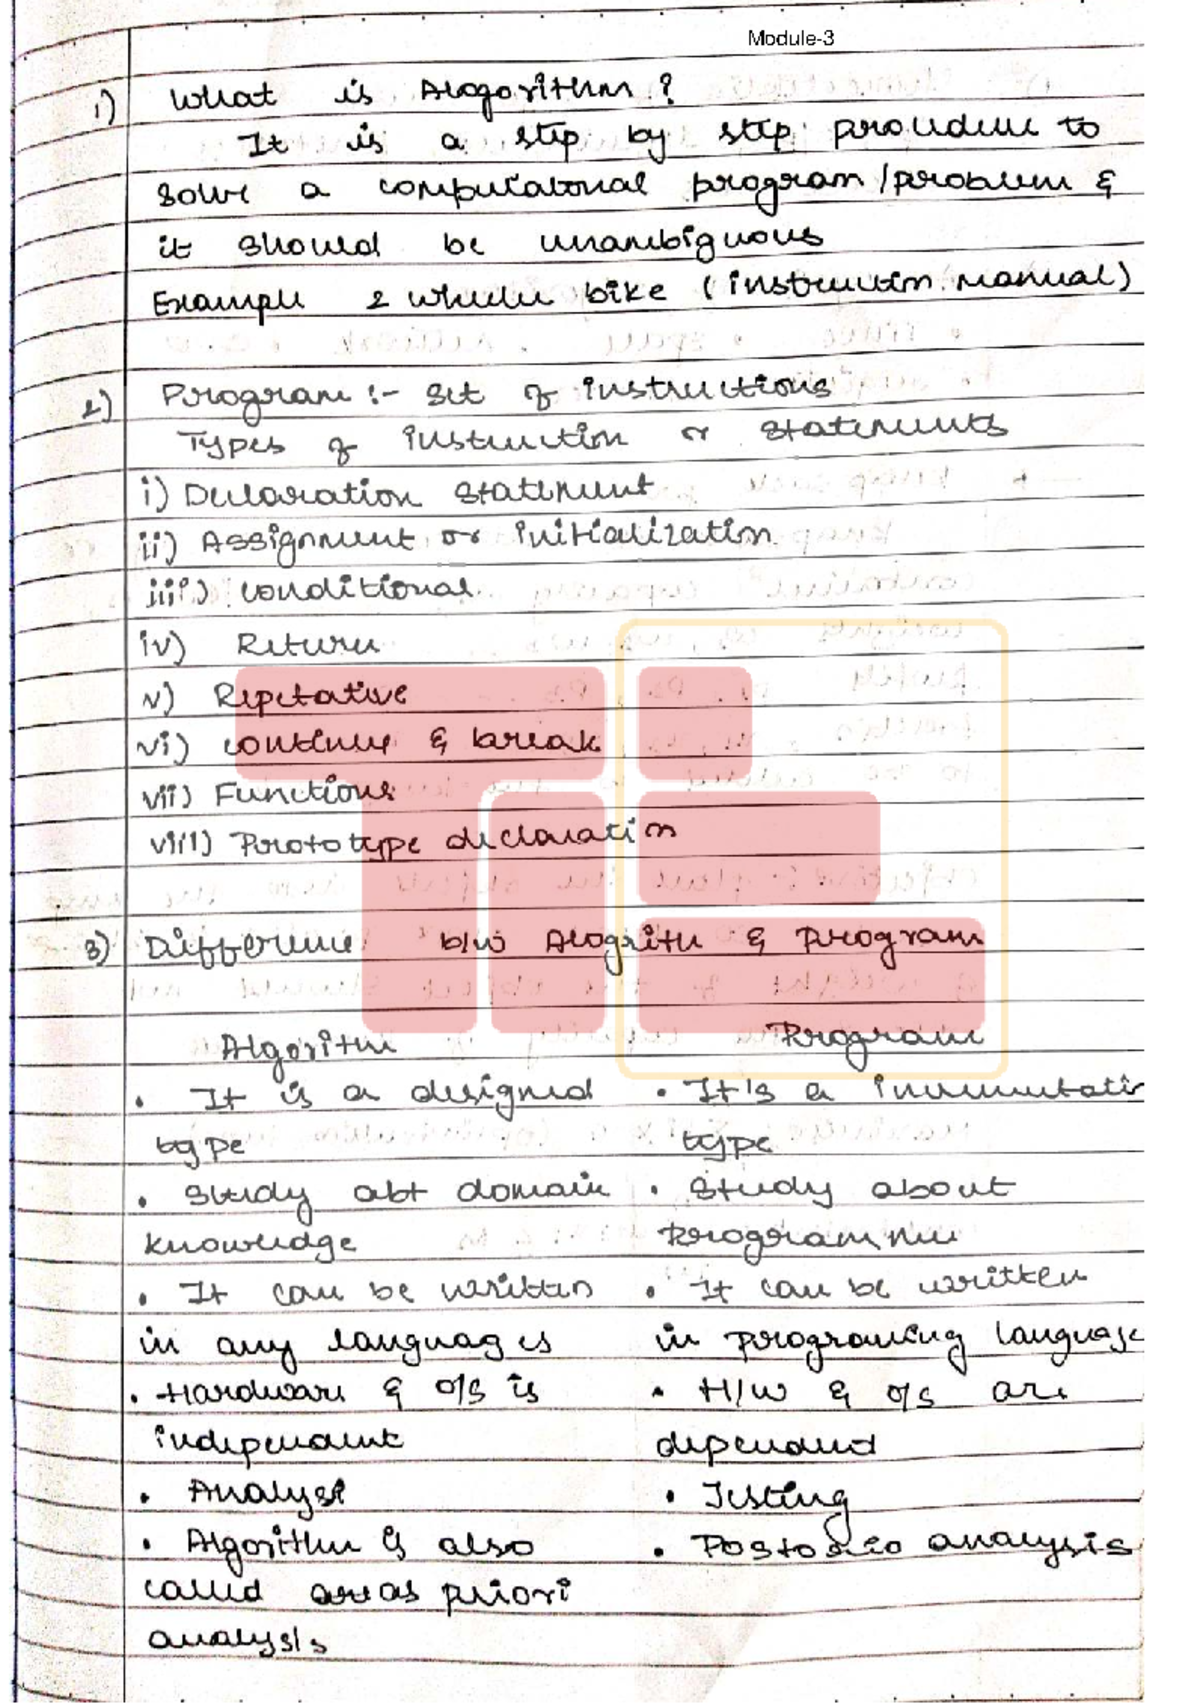 Module-3
1) What is Alogorithm?
It is a step by step proudeu to
solve a computational program/problem &
it should be unambiguous
Example 2 wheelu bike (instruction manual)
2) Program :- set of instructions
Types of instruction or statements
i) Declaration statement
ii) Assignment or initialization
iii) conditional
iv) Return
v) Repetative
vi) continue & break
vii) Functions
viii) Prototype declaration
3) Difference b/w Alogrith & program
Algorithm Program
• It is a designed • It's a
type type
• study abt domain • study about
knowledge
• It can be written • It can be written
in any languages in programing language
• Hardware & o/s is • H/w & o/s are
independent dependend
• Analyse • Testing
• Algorithm is also • analysis
called priori
analysis